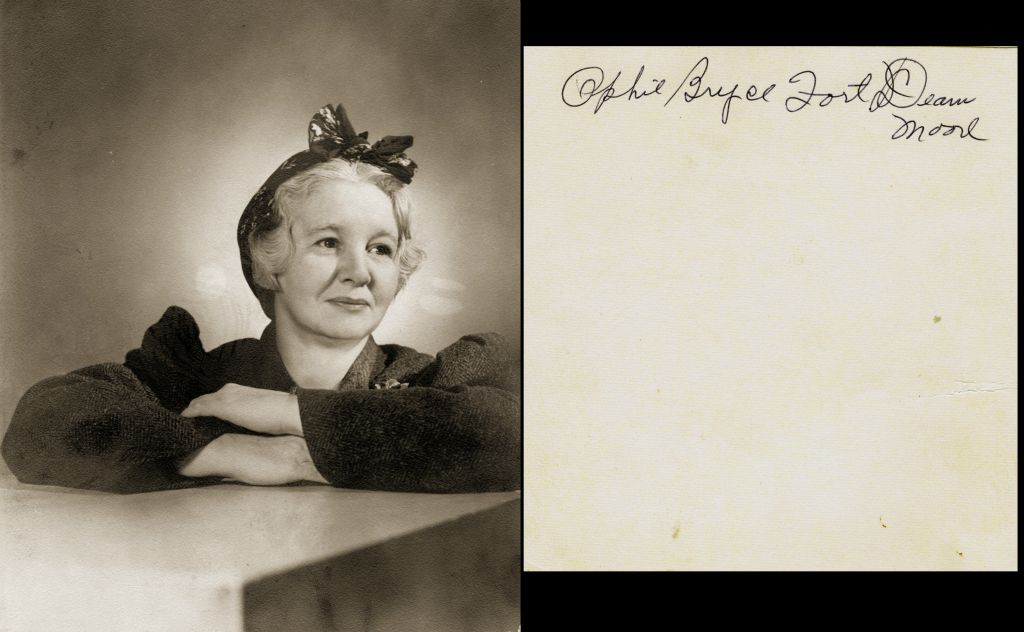 Ophie Bryce Fort Deam
Moore